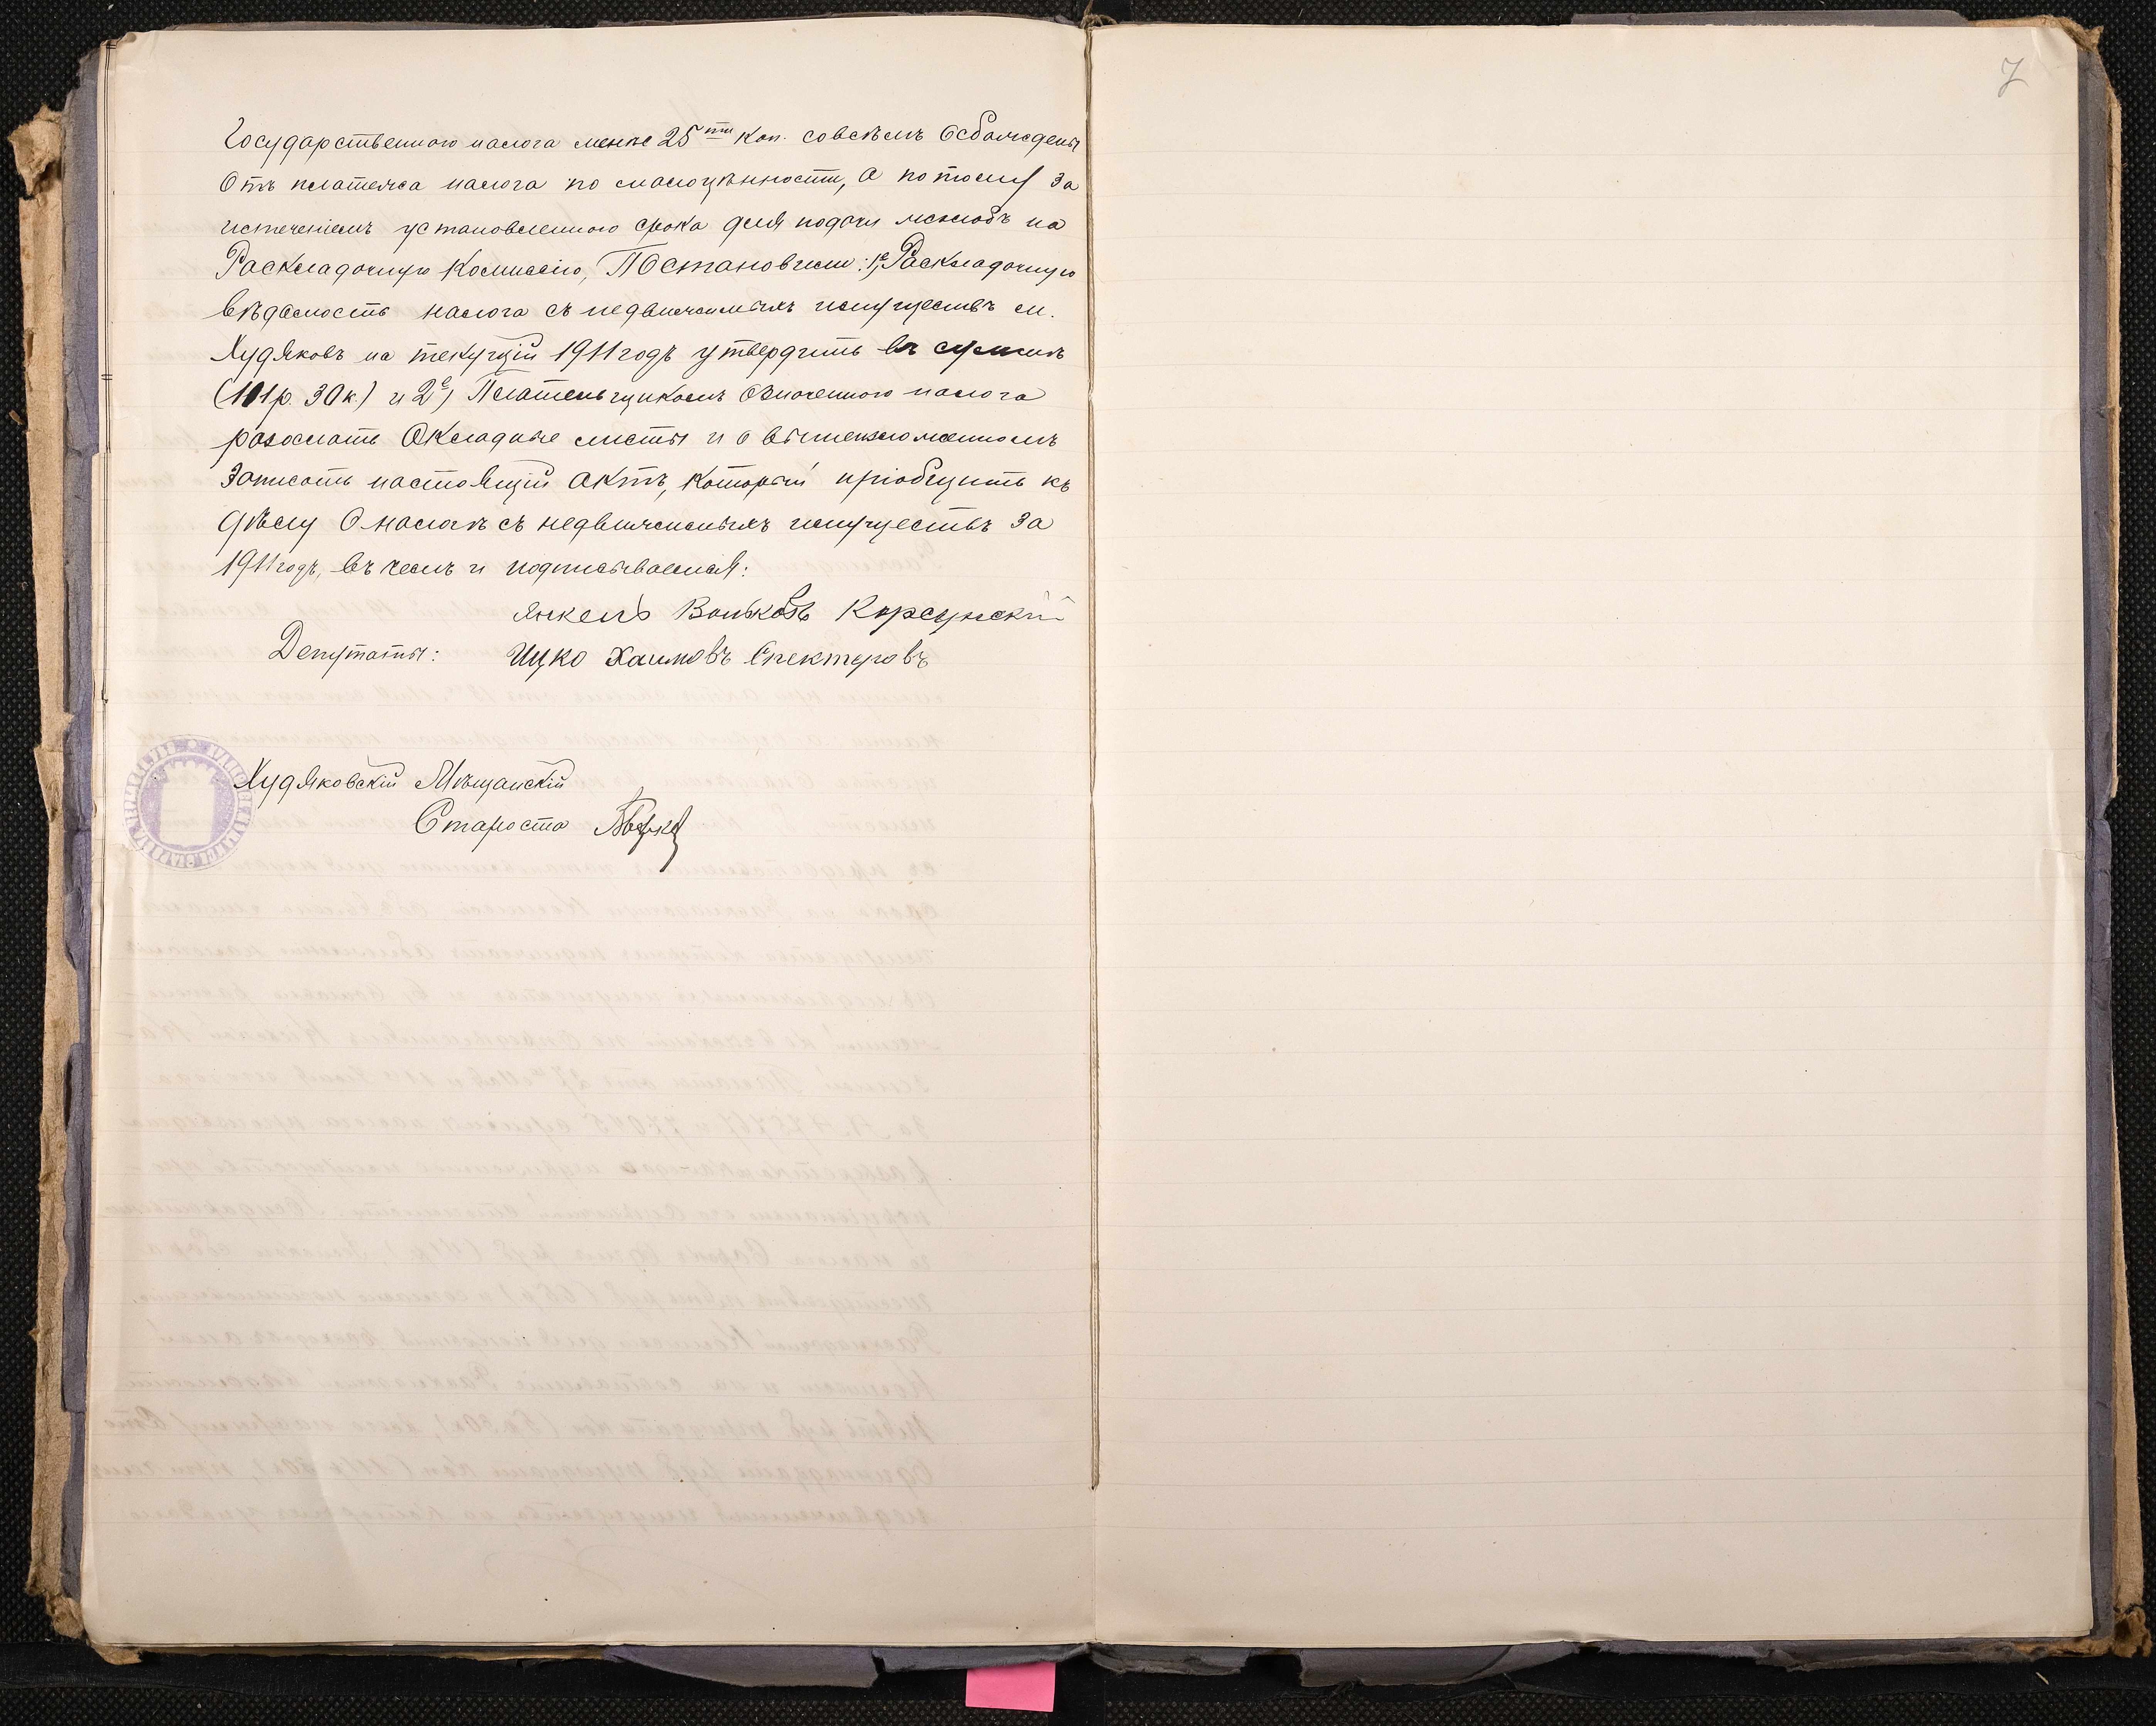 7
Государственного налога менѣе 25ти коп. совсѣмъ Освобождены
Отъ платежа налога по малоцѣнности, а потому за
истеченіемъ установленного срока для подачи жалобъ на
Раскладочную Комиссію, Постановили: 1е, Раскладочную
вѣдомость налога съ недвижимыхъ имуществъ м.
Худяковъ на текущій 1911 годъ утвердить въ суммѣ
(111р. 30к.) и 2е, Плательщикамъ Означенного налога
разослать Окладные листы и о вышеизложенномъ
Записать настоящій актъ, который пріобщить къ
дѣлу О налогѣ съ недвижимыхъ имуществъ за
1911 годъ, въ чемъ и подписываемся:
Янкель Вольковъ Корсунскій
Депутаты: Ицко Хаимовъ Спекторовъ
Худяковскій Мѣщанскій
Староста